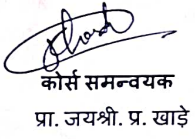 कोर्स समन्वयक
प्रा. जयश्री. प्र. खाड़े